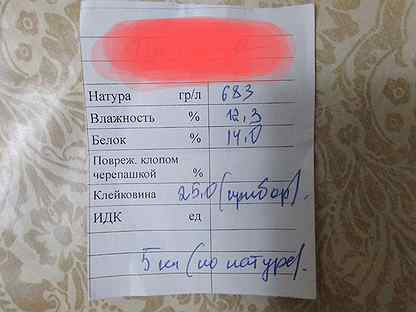 Натура гр/л 683
Влажность % 12,3
Белок % 14.0
Повреж. клопом
черепашкой %
Клейковина 25.0 (прибор).
ИДК ед
5 кл (по натуре).